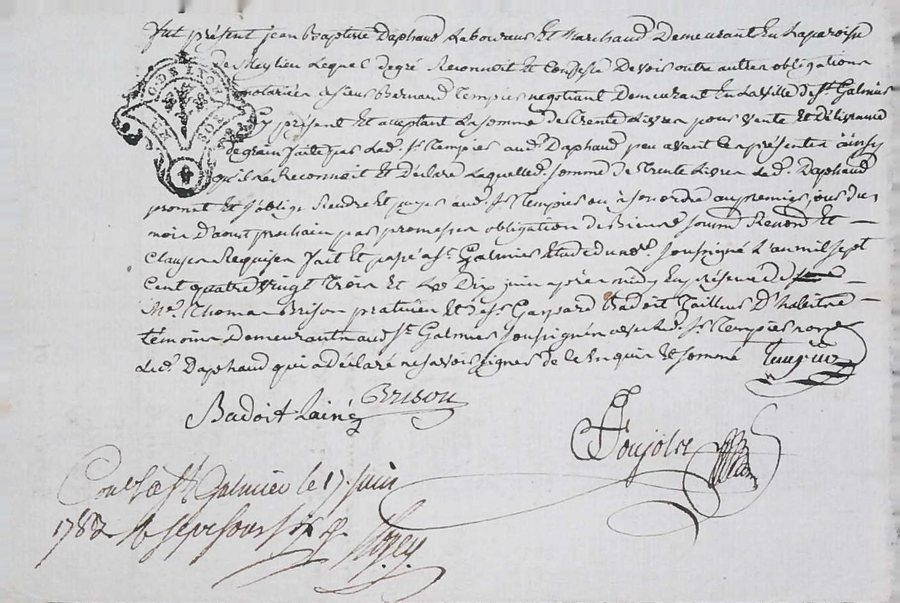 fut présent jean Baptiste Daphaud Laboureur Et Marchand Demeurant En Laparoisse
De Meylieu Lequel degré Reconnoit Et Confesse Devoir outre autres obligations
notariées a sieur Bernard Tempier negotiant Demeurant En La ville de St. Galmier
Cy présent Et aceptant La somme de Trente Livres pour vente Et Délivrance
de grain faite par Led. Sr. Tempier aud. Daphaud peu avant Ces présentes ainsy
qu'il Le Reconnoit et Déclare Laquelle d. somme de Trente Livres Led. Daphaud
promet Et s'oblige Rendre Et payer aud. Sr. Tempier ou à son ordre au premier jour du
mois D'aoust prochain par promesses obligation de Biens soum Renon Et
Clauses Requises fait Et passé a St. Galmier Etude du no.re soussigné L'an mil sept
Cent quatre vingt trois Et Le Dix juin après midy En présence de
Me. Thomas Brison praticien Et de Sr. Gaspard Badoit Tailleur D'habits
témoins Demeurants aud. St. Galmier soussignés avec Led. Sr. Tempier non
Led. Daphaud qui a Déclaré ne savoir signer de ce Enquis Et sommé Tempier
Badoit Lainé Brison
Poujolre
Con.lé a St. Galmier le 17 juin
1783 R sept sous six d.
G. DE LYON